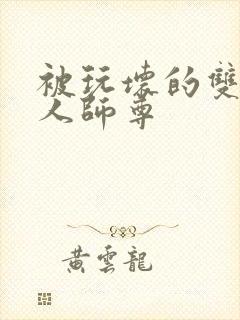 被玩壞的雙
人師尊
黃雲龍